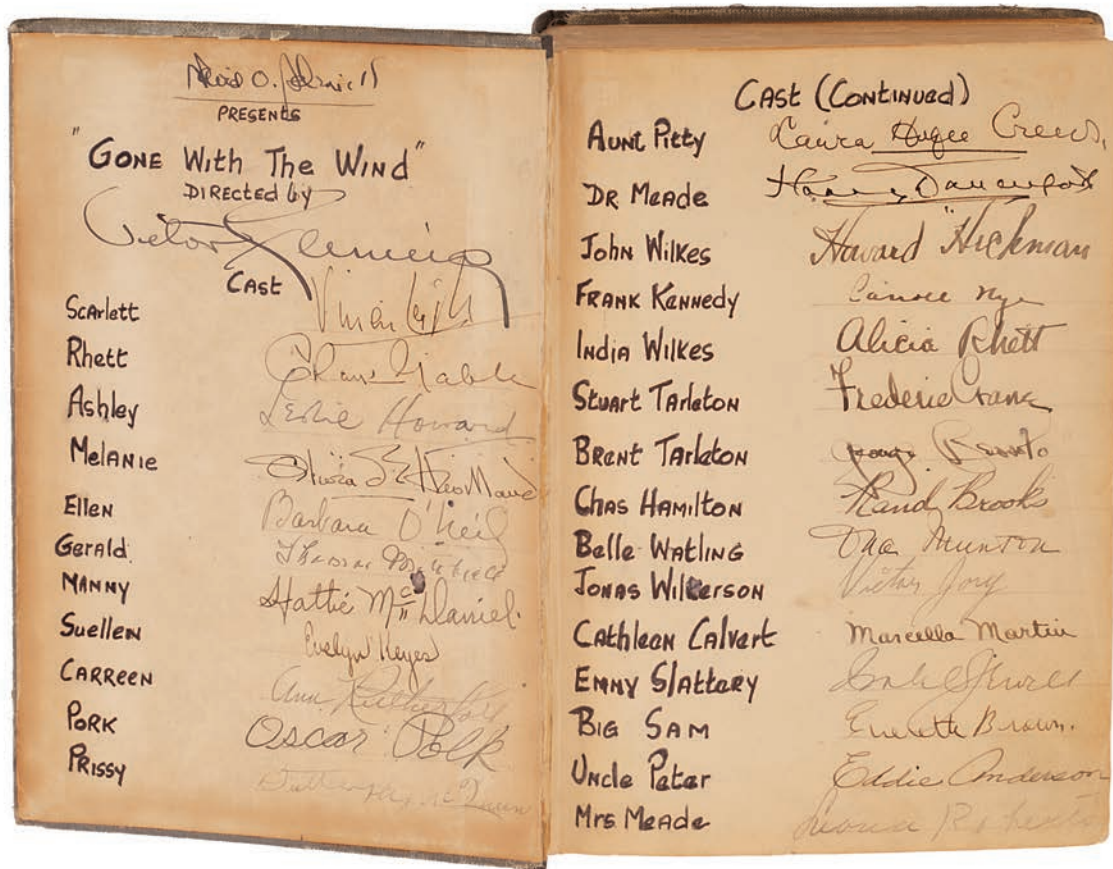 David O. Selznick
PRESENTS
"GONE With The Wind"
DIRECTED by
Victor Fleming
CAST
Scarlett Vivien Leigh
Rhett Clark Gable
Ashley Leslie Howard
Melanie Olivia de Havilland
Ellen Barbara O'Neil
Gerald Thomas Mitchell
MANNY Hattie McDaniel
Suellen Evelyn Keyes
CARREEN Ann Rutherford
PORK Oscar Polk
PRISSY Butterfly McQueen
CAST (CONTINUED)
AUNT Pitty Laura Hope Crews
DR MEADE Harry Davenport
John Wilkes Howard Hickman
FRANK KENNEDY Carroll Nye
INDIA WILKES Alicia Rhett
STUART TARLETON Frederic Crane
BRENT TARLETON George Reeves
CHAS HAMILTON Rand Brooks
Belle WATLING Ona Munson
JONAS WILKERSON Victor Jory
CATHLEEN CALVERT Marcella Martin
EMMY SLATTERY Isabel Jewell
BIG SAM Everett Brown
UNCLE PETER Eddie Anderson
MRS MEADE Leona Roberts